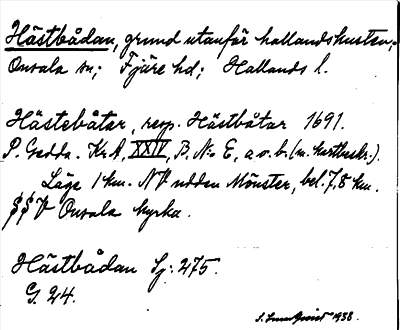 Hästbådan, grund utanför hallandskusten,
Onsala sn; Fjäre hd; Hallands l.
Hästebåtar, resp. Hästbåtar 1691.
P. Gedda. Kr.A, XXIV, B. N:o E, a o. b. (m. kurtbeskr.).
Läge 1 km. NV udden Mönster, bel. 7,8 km.
SSV Onsala kyrka.
Hästbådan Sj: 275.
G. 24.
1938.